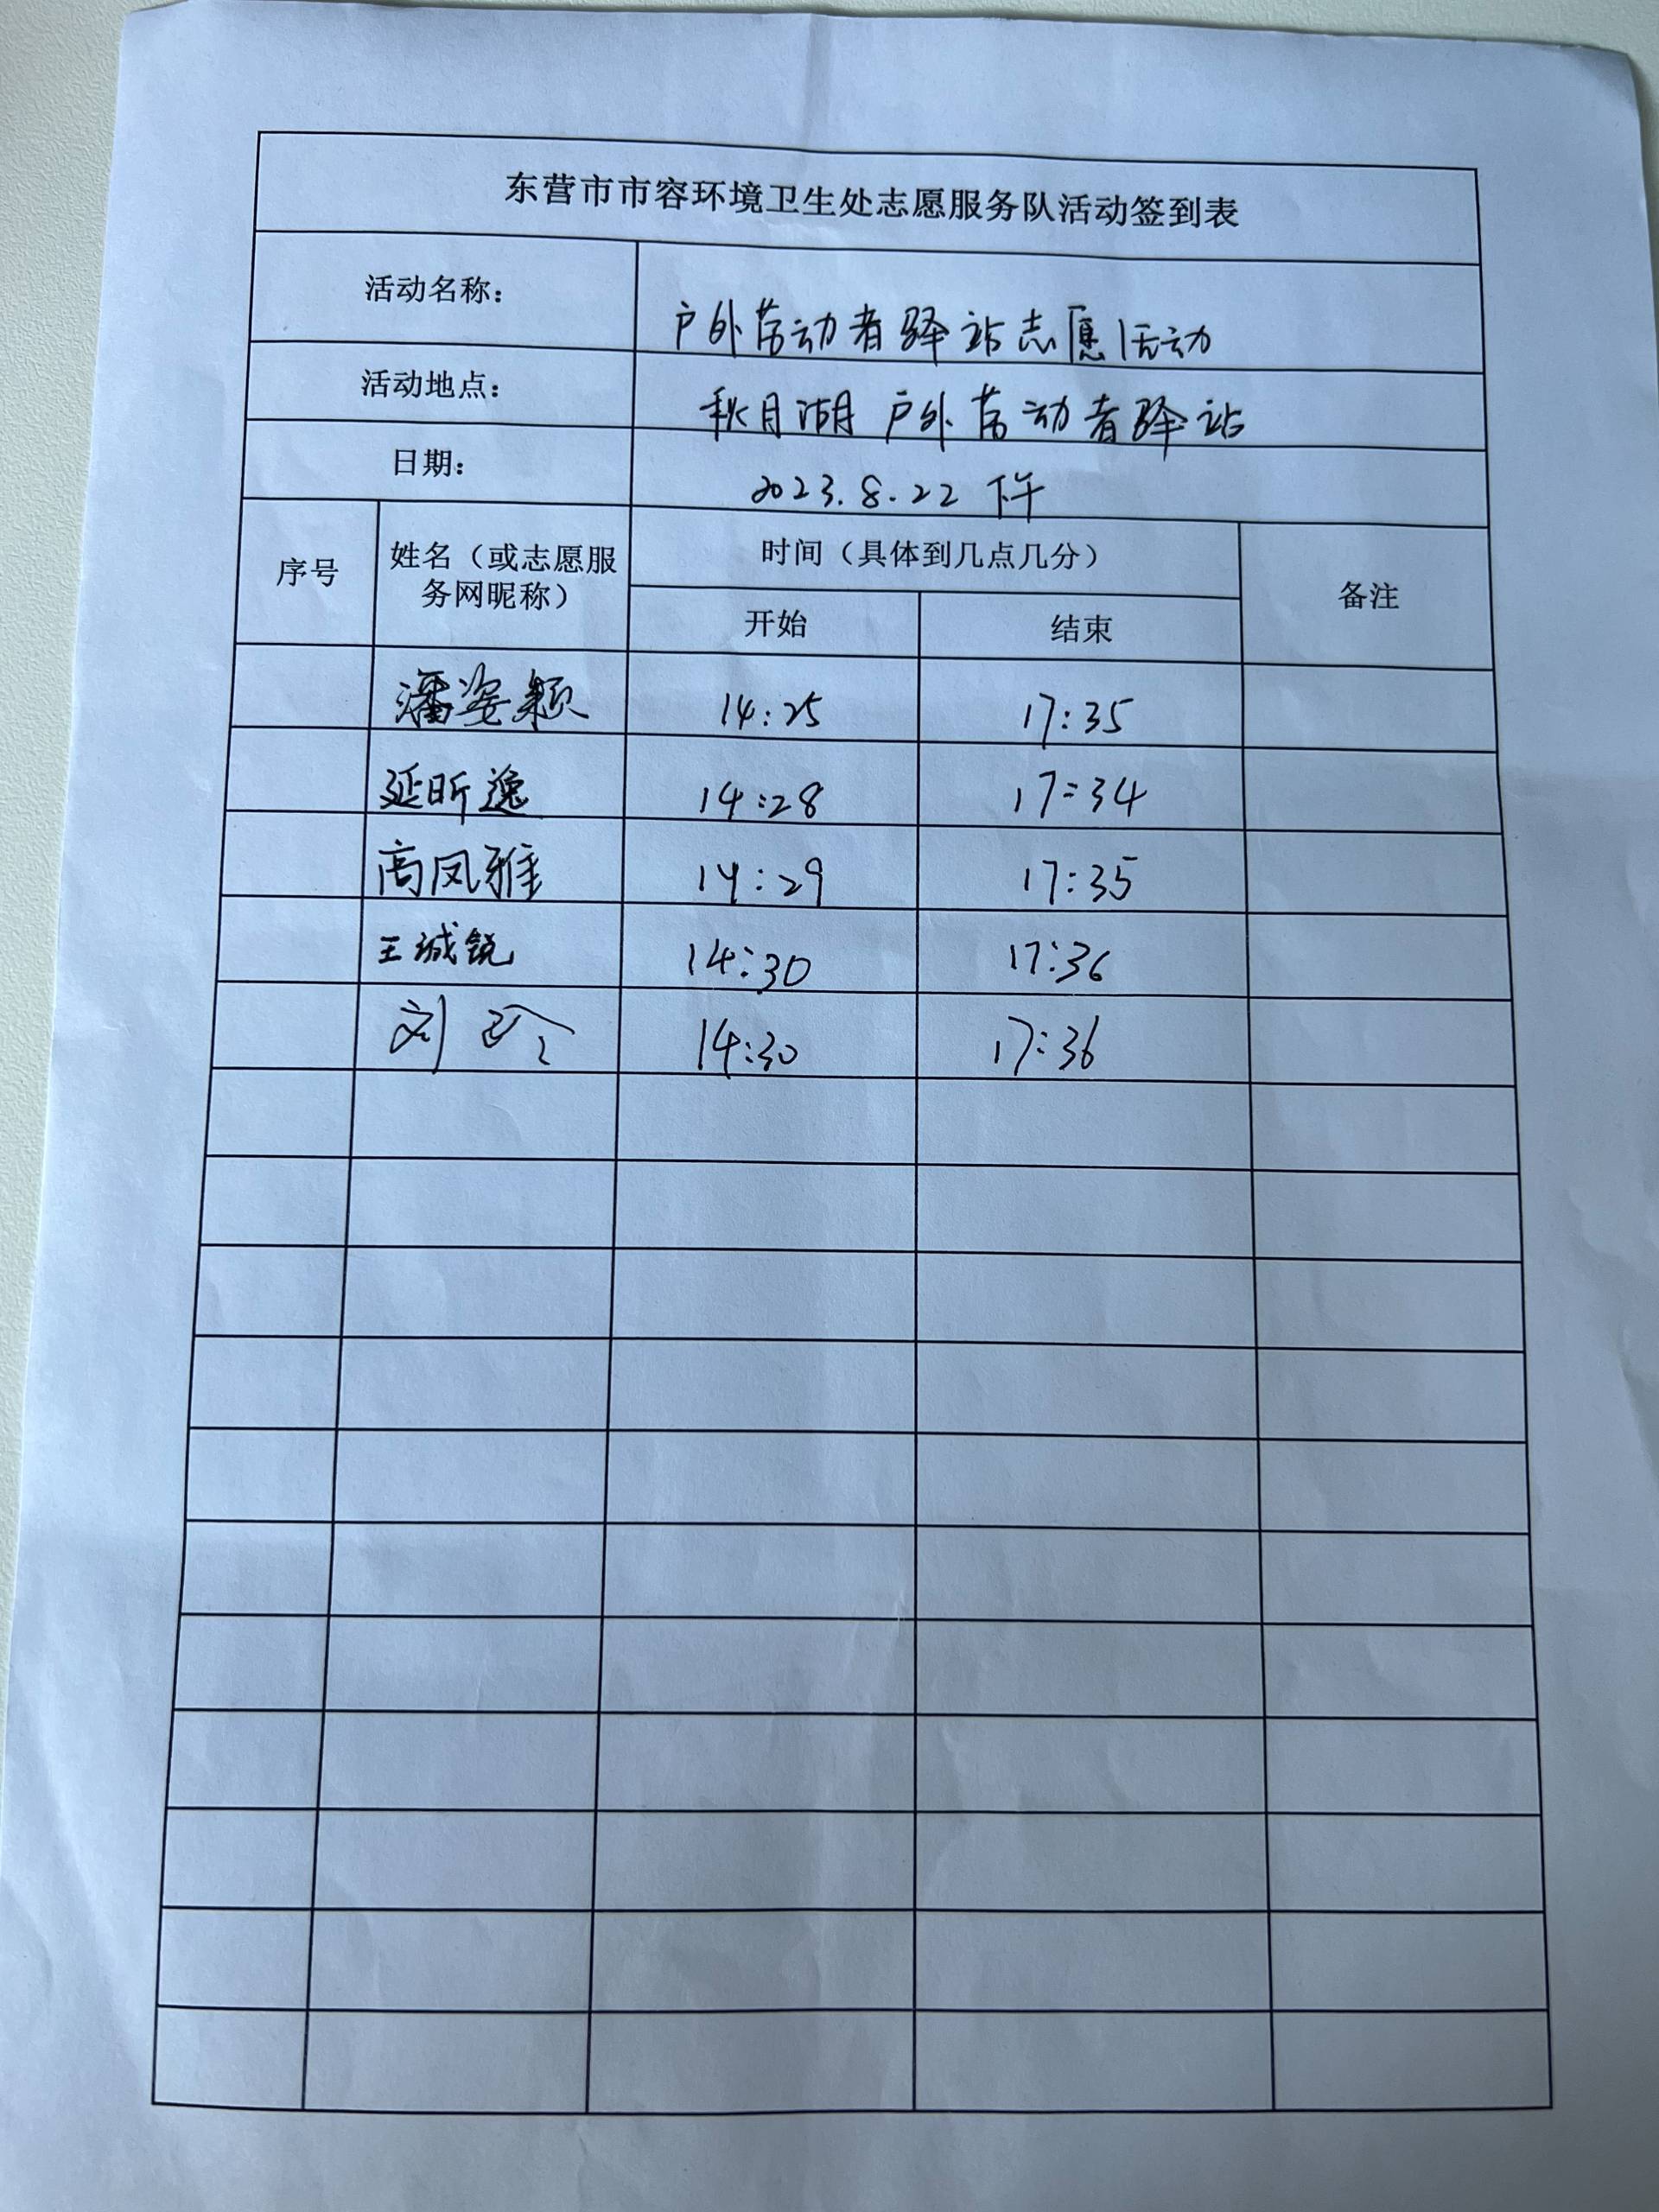 东营市市容环境卫生处志愿服务队活动签到表
活动名称： 户外劳动者驿站志愿活动
活动地点： 秋月湖户外劳动者驿站
日期： 2023.8.22 下午
序号 姓名（或志愿服务网昵称） 时间（具体到几点几分） 备注
开始 结束
潘姿颖 14:25 17:35
延昕逸 14:28 17:34
高凤雅 14:29 17:35
王诚锐 14:30 17:36
刘玲 14:30 17:36